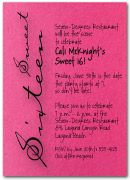 Sweet Sixteen
Seven-Degrees Restaurant
will be the scene
to celebrate
Cali McKnight's
Sweet 16!
Friday, June 30th is the date
the party starts at 7,
so don't be late!
Please join us to celebrate
7 p.m. - 11 p.m. at the
Seven-Degrees Restaurant
891 Laguna Canyon Road
Laguna Beach
RSVP by June 20th to 555-1625